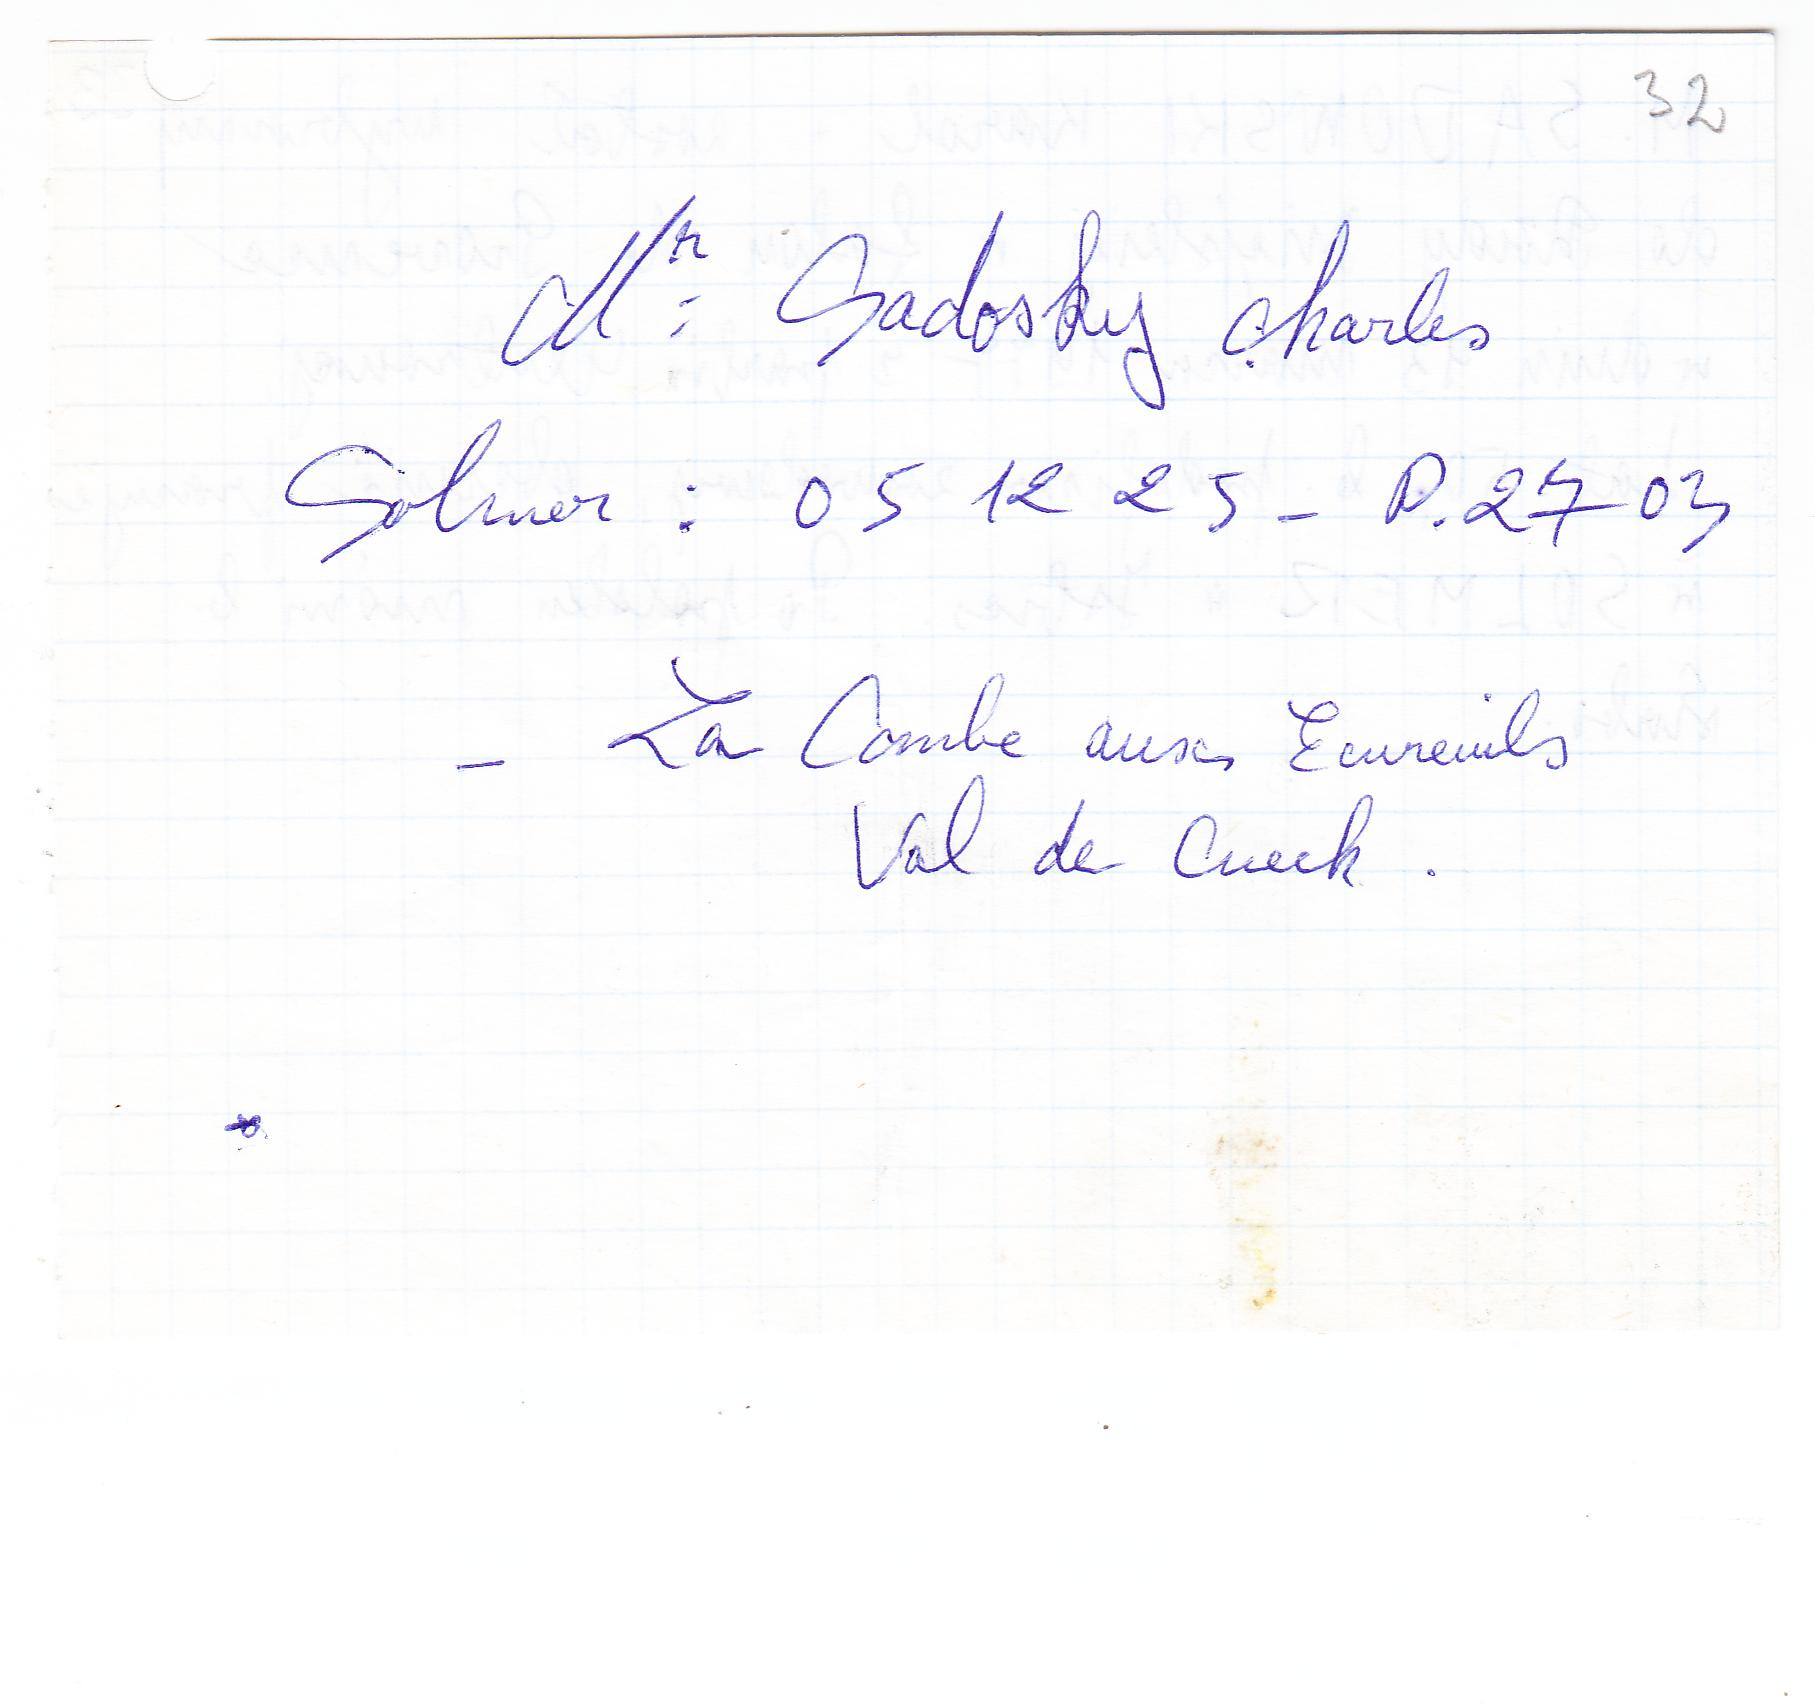 32
Mr : Sadosky Charles
Solmer : 05 12 25 - P. 27 03
- La Combe aux Ecureuils
Val de Cuech .